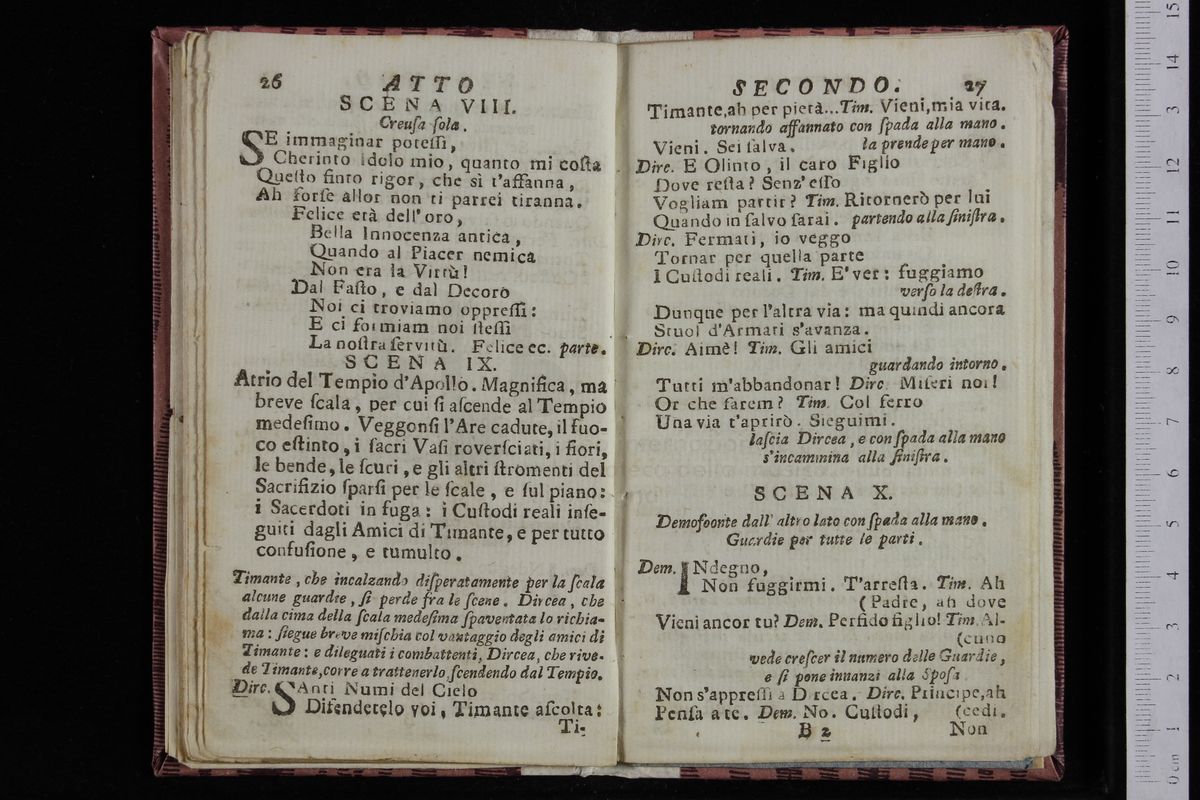 26 ATTO
SCENA VIII.
Creuſa ſola.
SE immaginar poteſſi,
Cherinto idolo mio, quanto mi coſta
Queſto finto rigor, che sì t'affanna,
Ah forſe allor non ti parrei tiranna.
Felice età dell' oro,
Bella Innocenza antica,
Quando al Piacer nemica
Non era la Virtù!
Dal Faſto, e dal Decoro
Noi ci troviamo oppreſſi:
E ci formiam noi ſteſſi
La noſtra ſervitù. Felice ec. parte.
SCENA IX.
Atrio del Tempio d'Apollo. Magnifica, ma
breve ſcala, per cui ſi aſcende al Tempio
medeſimo. Veggonſi l'Are cadute, il fuo-
co eſtinto, i ſacri Vaſi roverſciati, i fiori,
le bende, le ſcuri, e gli altri ſtromenti del
Sacrifizio ſparſi per le ſcale, e ſul piano:
i Sacerdoti in fuga: i Cuſtodi reali inſe-
guiti dagli Amici di Timante, e per tutto
confuſione, e tumulto.
Timante, che incalzando diſperatamente per la ſcala
alcune guardie, ſi perde fra le ſcene. Dircea, che
dalla cima della ſcala medeſima ſpaventata lo richia-
ma: ſiegue breve miſchia col vantaggio degli amici di
Timante: e dileguati i combattenti, Dircea, che rive-
de Timante, corre a trattenerlo ſcendendo dal Tempio.
Dirc. SAnti Numi del Cielo
Difendetelo voi, Timante aſcolta:
Ti-
SECONDO. 27
Timante, ah per pietà... Tim. Vieni, mia vita.
tornando affannato con ſpada alla mano.
Vieni. Sei ſalva. la prende per mano.
Dirc. E Olinto, il caro Figlio
Dove reſta? Senz' eſſo
Vogliam partir? Tim. Ritornerò per lui
Quando in ſalvo ſarai. partendo alla ſiniſtra.
Dirc. Fermati, io veggo
Tornar per quella parte
I Cuſtodi reali. Tim. E' ver: fuggiamo
verſo la deſtra.
Dunque per l'altra via: ma quindi ancora
Stuol d'Armati s'avanza.
Dirc. Aimè! Tim. Gli amici
guardando intorno.
Tutti m'abbandonar! Dirc. Miſeri noi!
Or che farem? Tim. Col ferro
Una via t'aprirò. Sieguimi.
laſcia Dircea, e con ſpada alla mano
s'incammina alla ſiniſtra.
SCENA X.
Demofoonte dall' altro lato con ſpada alla mano.
Guardie per tutte le parti.
Dem. INdegno,
Non fuggirmi. T'arreſta. Tim. Ah
(Padre, ah dove
Vieni ancor tu? Dem. Perfido figlio! Tim. Al-
(cuno
vede creſcer il numero delle Guardie,
e ſi pone innanzi alla Spoſa.
Non s'appreſſi a Dircea. Dirc. Principe, ah
Penſa a te. Dem. No. Cuſtodi, (cedi.
B 2 Non